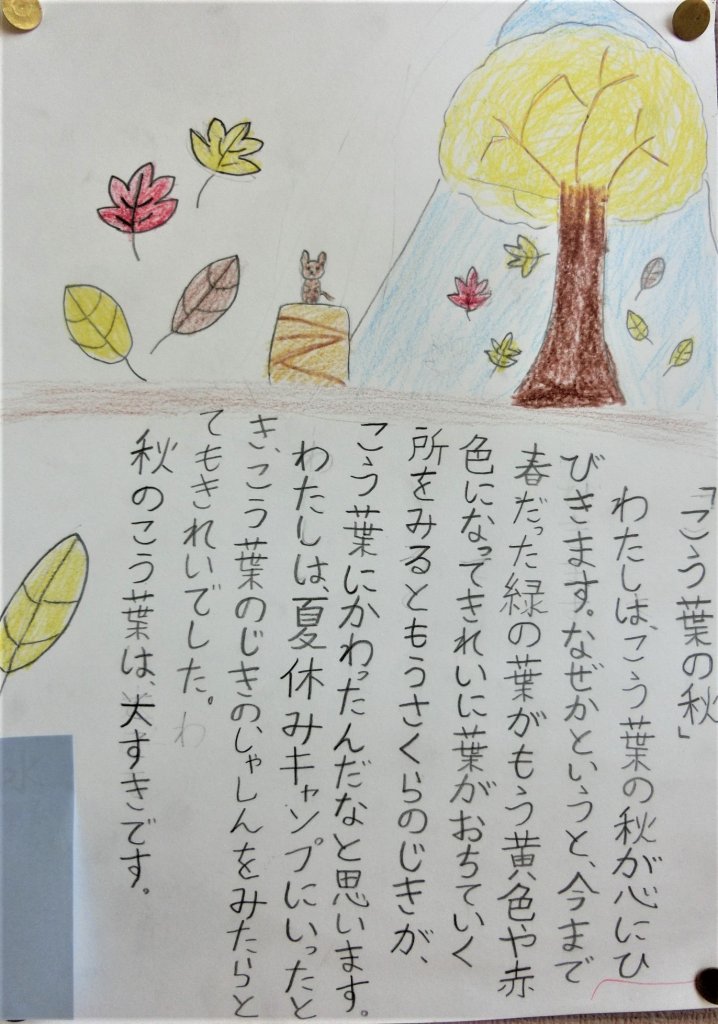 「こう葉の秋」
わたしは、こう葉の秋が心にひ
びきます。なぜかというと、今まで
春だった緑の葉がもう黄色や赤
色になってきれいに葉がおちていく
所をみるともうさくらのじきが、
こう葉にかわったんだなと思います。
わたしは、夏休みキャンプにいったと
き、こう葉のじきのしゃしんをみたらと
てもきれいでした。わ
秋のこう葉は、大すきです。